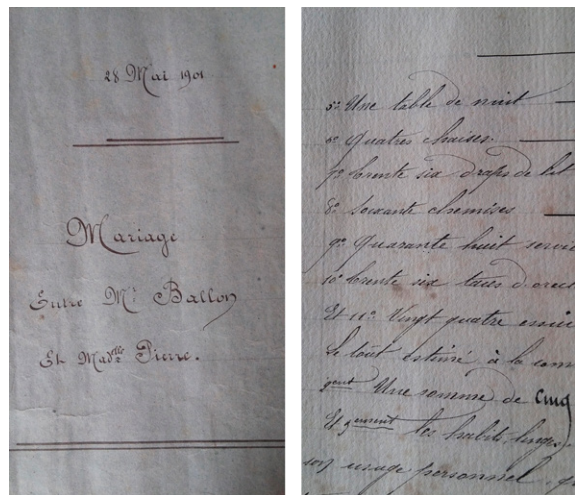 28 Mai 1901
Mariage
Entre Mr. Ballon
Et Madelle Pierre.
5o Une table de nuit
6o Quatres chaises
7o Trente six draps de lit
8o Soixante chemises
9o Quarante huit servie
10o Trente six taies d'orei
Et 11o Vingt quatre essuie
Le tout estimé à la som
Une somme de cinq
Et les habits, linges
son usage personnel